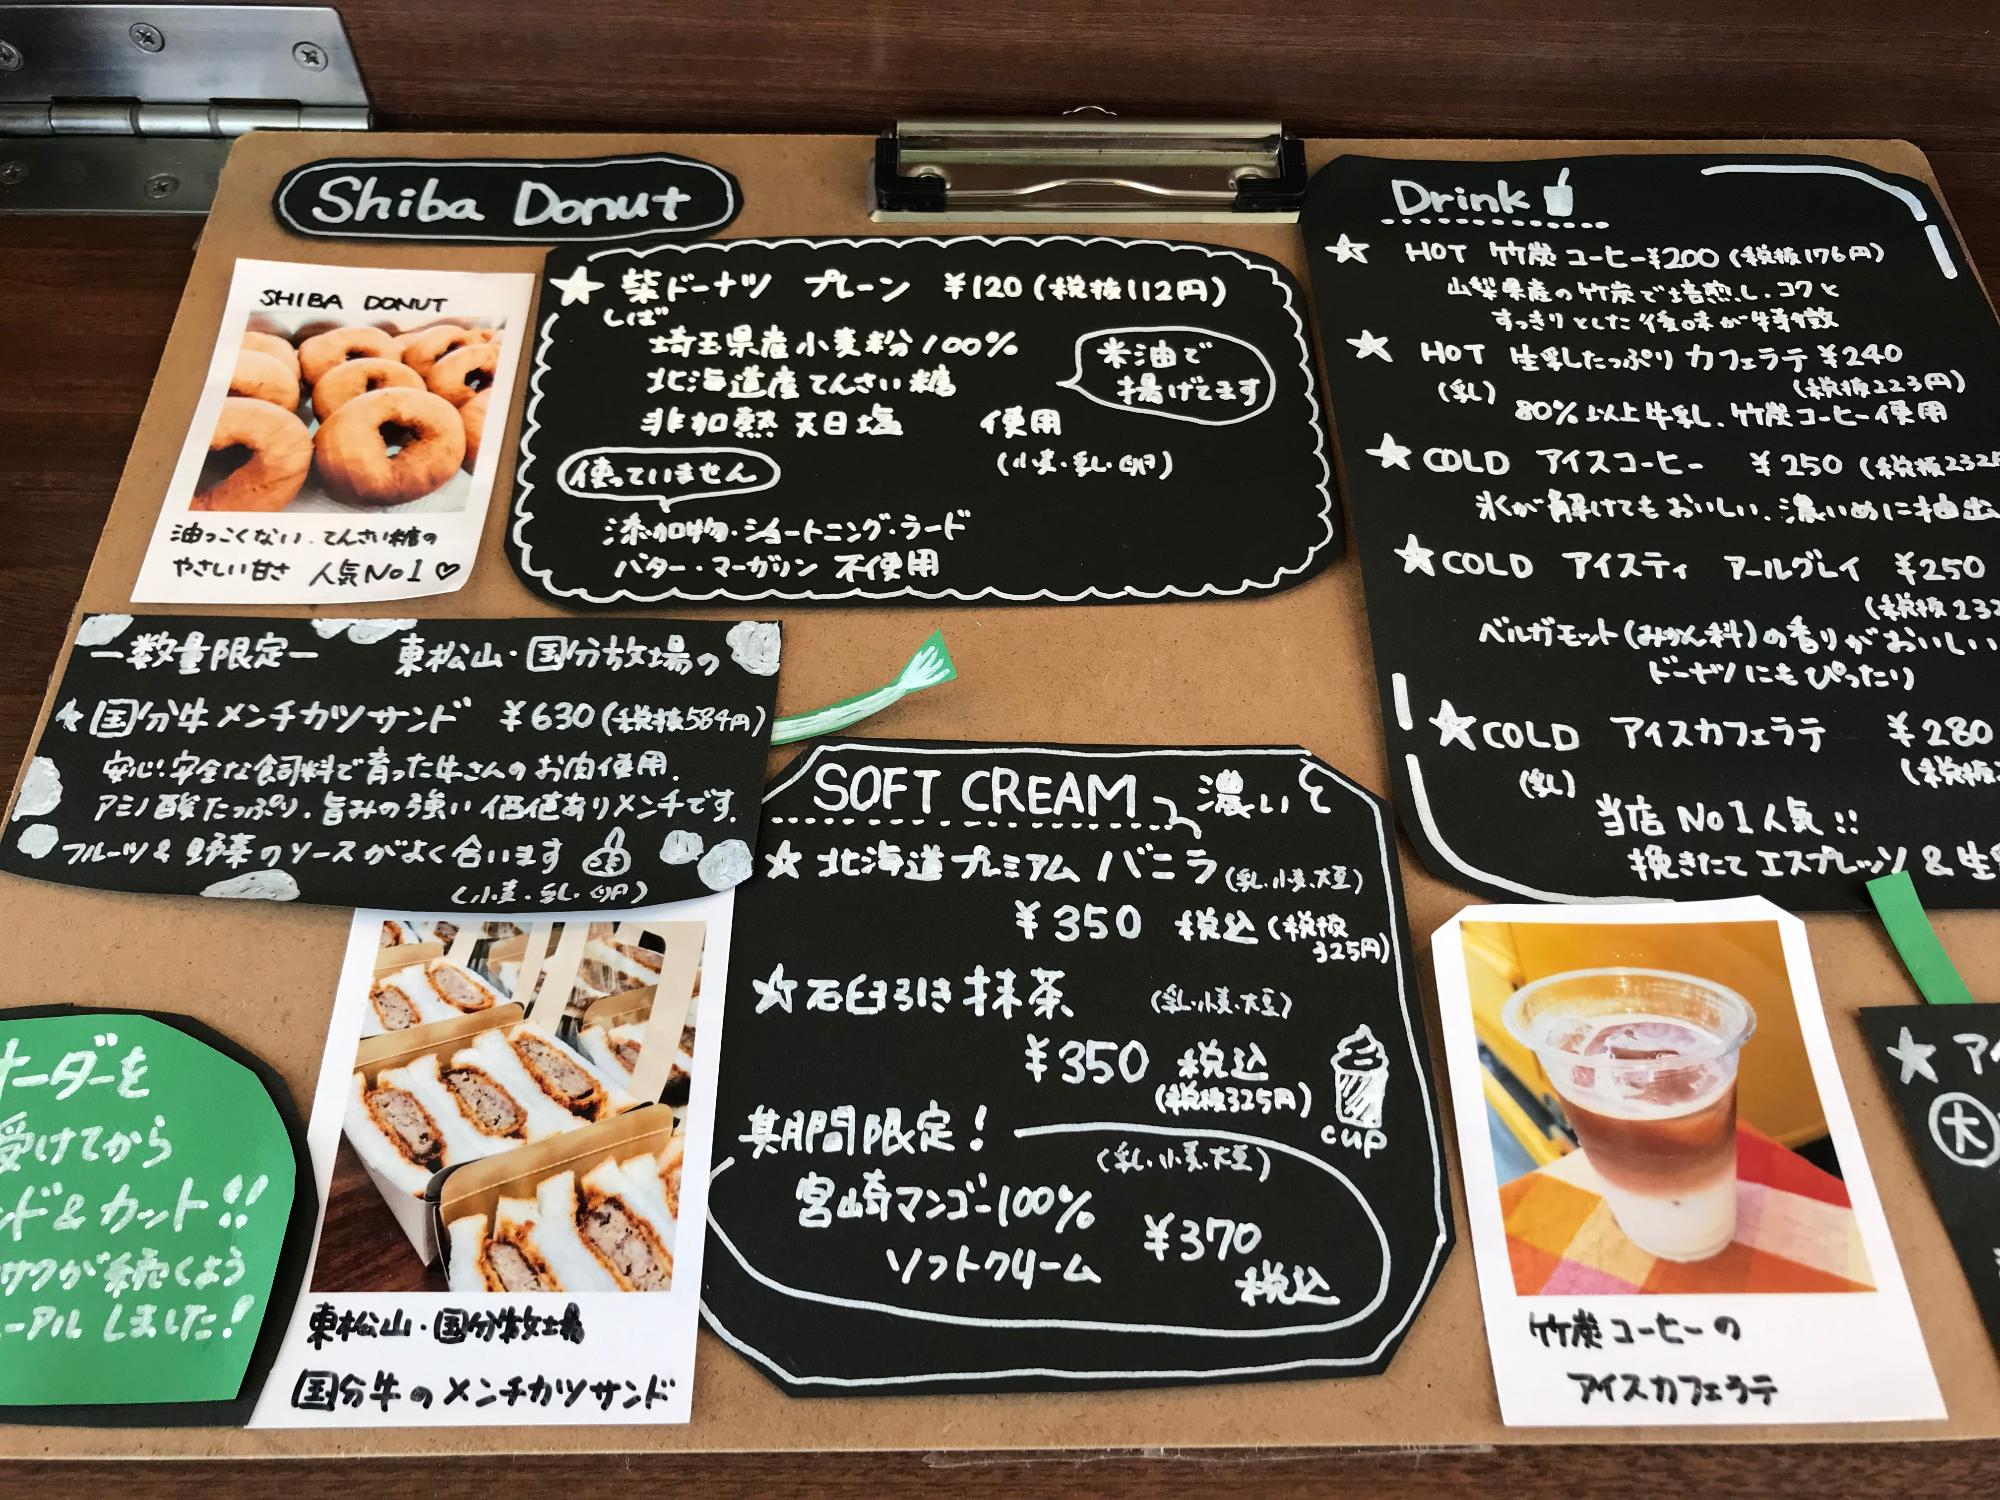 Shiba Donut
SHIBA DONUT
油っこくない、てんさい糖の
やさしい甘さ 人気No1♡
★柴ドーナツ プレーン ¥120(税抜112円)
しば
埼玉県産小麦粉100%
北海道産てんさい糖
非加熱天日塩 使用
(小麦・乳・卵)
米油で
揚げてます
使っていません
添加物・ショートニング・ラード
バター・マーガリン 不使用
Drink
★ HOT 竹炭コーヒー¥200(税抜176円)
山梨県産の竹炭で焙煎し、コクと
すっきりとした後味が特徴
★ HOT 生乳たっぷりカフェラテ ¥240
(乳) (税抜223円)
80%以上牛乳、竹炭コーヒー使用
★COLD アイスコーヒー ¥250 (税抜232
氷が解けてもおいしい、濃いめに抽出
★COLD アイスティ アールグレイ ¥250
(税抜232
ベルガモット(みかん科)の香りがおいしい
ドーナツにもぴったり
★COLD アイスカフェラテ ¥280
(乳) (税抜
当店No1人気!!
挽きたてエスプレッソ&生
ー数量限定ー 東松山・国分牧場の
★国分牛メンチカツサンド ¥630(税抜584円)
安心・安全な飼料で育った牛さんのお肉使用、
アミノ酸たっぷり、旨みの強い価値ありメンチです。
フルーツ&野菜のソースがよく合います
(小麦・乳・卵)
SOFT CREAM 濃い
☆北海道プレミアム バニラ(乳・小麦・大豆)
¥350 税込(税抜
325円)
☆石臼引き抹茶 (乳・小麦・大豆)
¥350 税込
(税抜325円)
cup
期間限定!
(乳・小麦・大豆)
宮崎マンゴー100%
ソフトクリーム
¥370
税込
オーダーを
受けてから
ンド&カット!!
サクが続くよう
ーアルしました!
東松山・国分牧場
国分牛のメンチカツサンド
竹炭コーヒーの
アイスカフェラテ
★ア
大